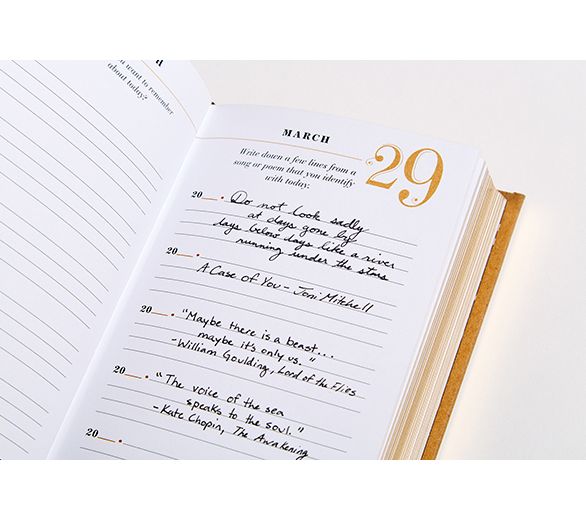 u want to remember
about today?
MARCH
29
Write down a few lines from a
song or poem that you identify
with today.
20__. Do not look sadly
at days gone by
days below days like a river
running under the stars
20__.
A Case of You - Joni Mitchell
20__. "Maybe there is a beast...
maybe it's only us."
-William Goulding, Lord of the Flies
20__. "The voice of the sea
speaks to the soul."
-Kate Chopin, The Awakening
20__.